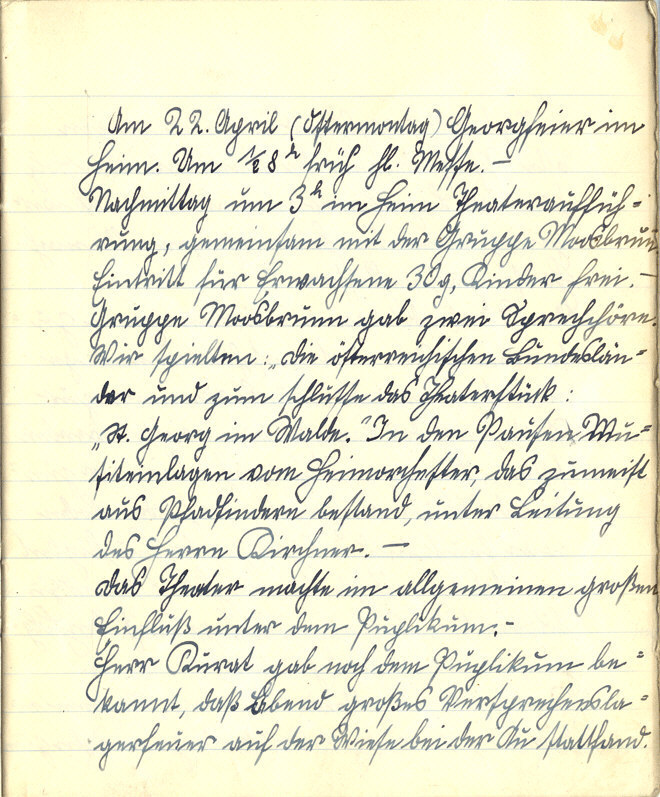 Am 22. April (Ostermontag) Georgfeier im
Heim. Um ½ 8 h früh hl. Messe. —
Nachmittag um 3 h im Heim Theaterauffüh=
rung, gemeinsam mit der Gruppe Moosbrunn
Eintritt für Erwachsene 30 g, Kinder frei. —
Gruppe Moosbrunn gab zwei Sprechchöre.
Wir spielten: „Die österreichischen Bundeslän=
der und zum schlusse das Theaterstück:
„St. Georg im Walde.“ In den Pausen Mu=
sikeinlagen vom Heimorchester, das zumeist
aus Pfadfindern bestand, unter Leitung
des Herrn Kirchner. —
Das Theater machte im allgemeinen großen
Einfluß unter dem Puplikum. –
Herr Kurat gab noch dem Puplikum be=
kannt, daß Abend großes Versprechensla=
gerfeuer auf der Wiese bei der Au stattfand.